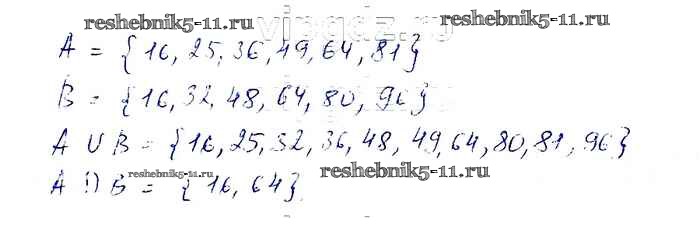 reshebnik5-11.ru
reshebnik5-11.ru
A = {16, 25, 36, 49, 64, 81}
B = {16, 32, 48, 64, 80, 96}
A ∪ B = {16, 25, 32, 36, 48, 49, 64, 80, 81, 96}
A ∩ B = {16, 64}
reshebnik5-11.ru
reshebnik5-11.ru